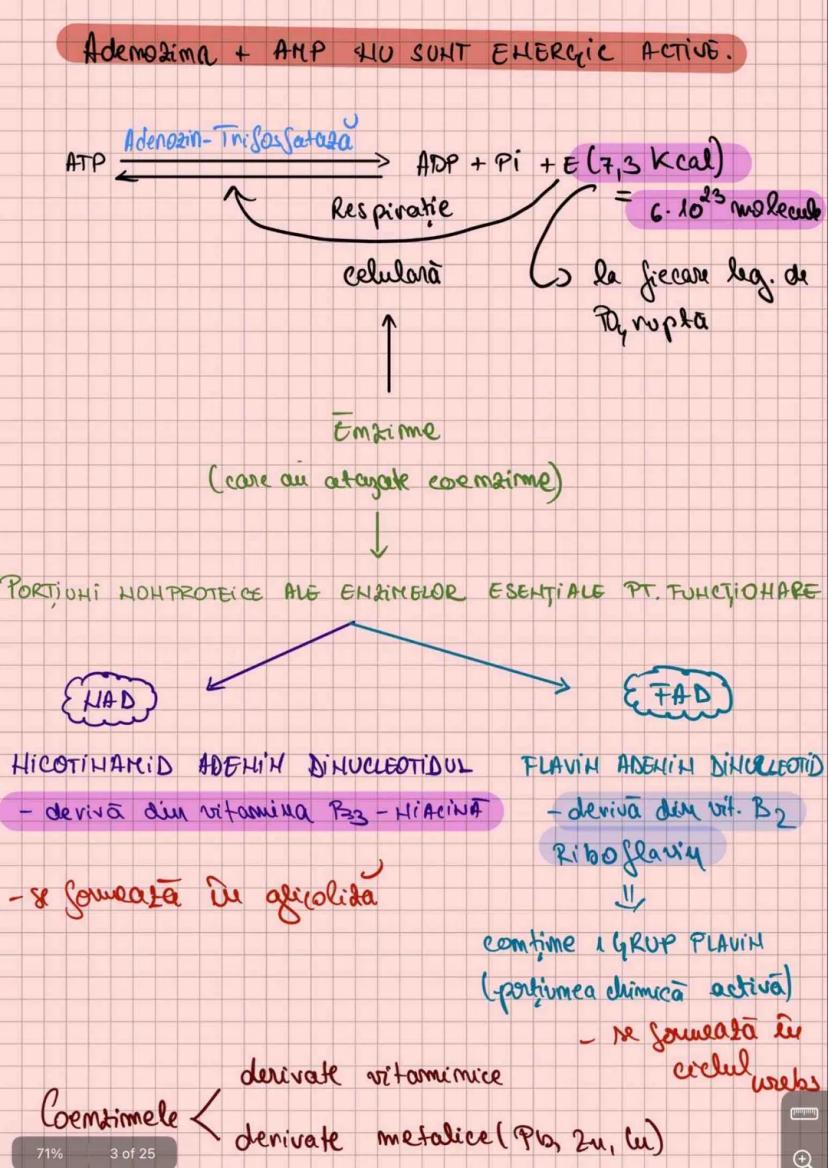 Adenozina + AMP NU SUNT ENERGIC ACTIVE.
Adenozin-Trifosfatază
ATP ADP + Pi + E (7,3 Kcal)
= 6·10²³ molecule
Respirație
celulară
la fiecare leg. de
PO₄ ruptă
Enzime
(care au atașate coenzime)
PORȚIUNI NONPROTEICE ALE ENZIMELOR ESENȚIALE PT. FUNCȚIONARE
NAD
FAD
NICOTINAMID ADENIN DINUCLEOTIDUL
FLAVIN ADENIN DINUCLEOTID
- derivă din vitamina B3 - NIACINĂ
- derivă din vit. B2
Riboflavin
- se formează în glicoliză
conține 1 GRUP FLAVIN
(porțiunea chimică activă)
- se formează în
ciclul Krebs
Coenzimele
derivate vitaminice
derivate metalice (Pb, Zn, Cu)
71% 3 of 25